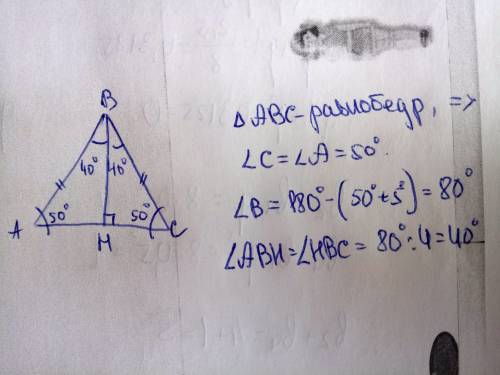 B
40° 40°
50° 50°
A H C
Δ ABC - равнобедр, =>
∠C = ∠A = 50°.
∠B = 180° - (50° + 5°) = 80°
∠ABH = ∠HBC = 80° : 4 = 40°